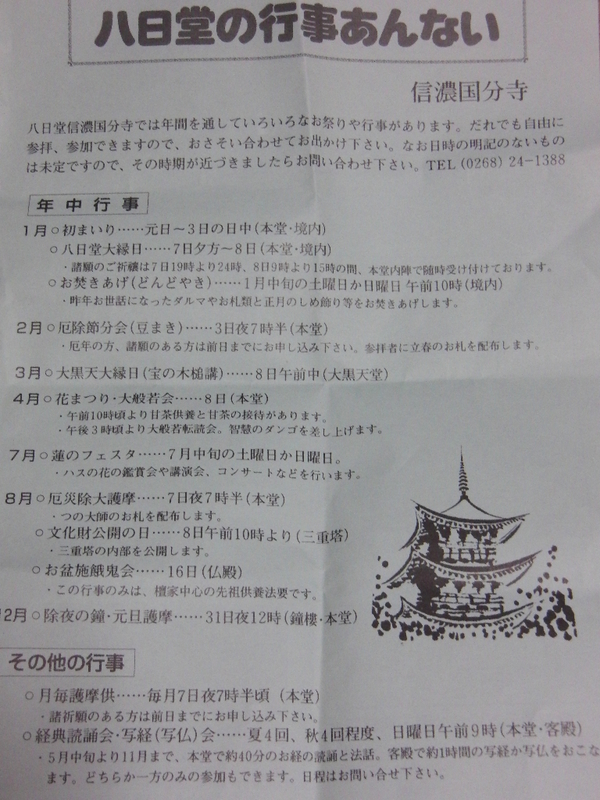 八日堂の行事あんない
信濃国分寺
八日堂信濃国分寺では年間を通していろいろなお祭りや行事があります。だれでも自由に
参拝、参加できますので、おさそい合わせてお出かけ下さい。なお日時の明記のないもの
は未定ですので、その時期が近づきましたらお問い合わせ下さい。TEL(0268)24-1388
年中行事
1月○初まいり……元日〜3日の日中(本堂・境内)
○八日堂大縁日……7日夕方〜8日(本堂・境内)
・諸願のご祈禱は7日19時より24時、8日9時より15時の間、本堂内陣で随時受け付けております。
○お焚きあげ(どんどやき)……1月中旬の土曜日か日曜日 午前10時(境内)
・昨年お世話になったダルマやお札類と正月のしめ飾り等をお焚きあげします。
2月○厄除節分会(豆まき)……3日夜7時半(本堂)
・厄年の方、諸願のある方は前日までにお申し込み下さい。参拝者に立春のお札を配布します。
3月○大黒天大縁日(宝の木槌講)……8日午前中(大黒天堂)
4月○花まつり・大般若会……8日(本堂)
・午前10時頃より甘茶供養と甘茶の接待があります。
・午後3時頃より大般若転読会。智慧のダンゴを差し上げます。
7月○蓮のフェスタ……7月中旬の土曜日か日曜日。
・ハスの花の鑑賞会や講演会、コンサートなどを行います。
8月○厄災除大護摩……7日夜7時半(本堂)
・つの大師のお札を配布します。
○文化財公開の日……8日午前10時より(三重塔)
・三重塔の内部を公開します。
○お盆施餓鬼会……16日(仏殿)
・この行事のみは、檀家中心の先祖供養法要です。
2月○除夜の鐘・元旦護摩……31日夜12時(鐘楼・本堂)
その他の行事
○月毎護摩供……毎月7日夜7時半頃(本堂)
・諸祈願のある方は前日までにお申し込み下さい。
○経典読誦会・写経(写仏)会……夏4回、秋4回程度、日曜日午前9時(本堂・客殿)
・5月中旬より11月まで、本堂で約40分のお経の読誦と法話。客殿で約1時間の写経か写仏をおこな
ます。どちらか一方のみの参加もできます。日程はお問い合せ下さい。